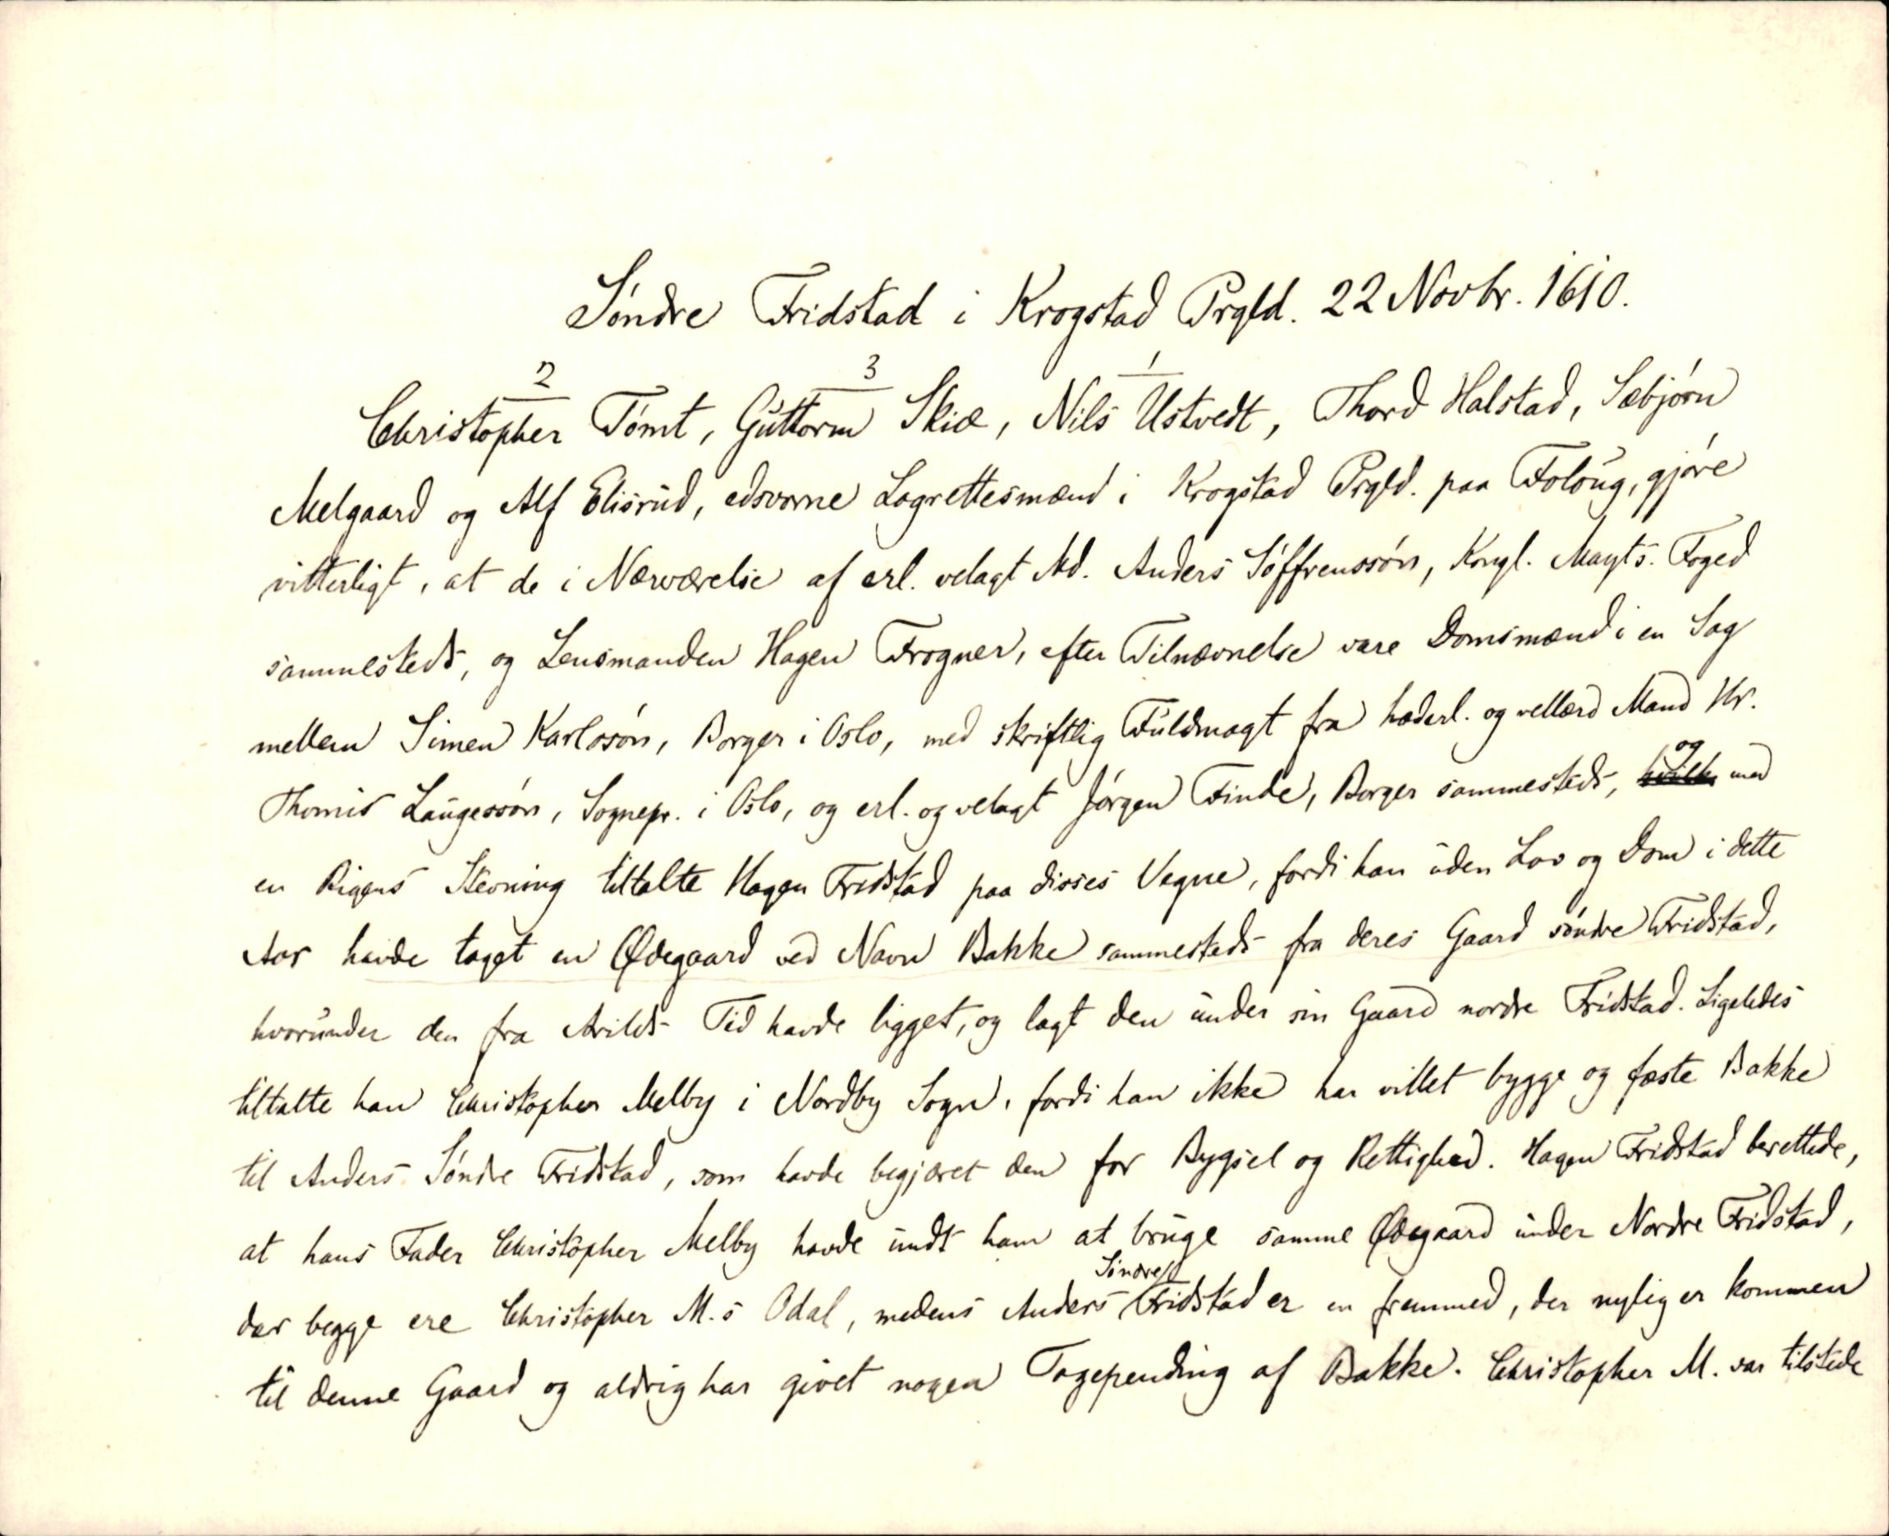 Søndre Fridstad i Krogstad Prgld. 22 Novbr. 1610.
2 3 1
Christopher Tømt, Guttorm Skiæ, Nils Ustvedt, Thord Halstad, Sæbjørn
Melgaard og Alf Elisrud, edsvorne Lagrettesmænd i Krogstad Prgld. paa Foloug, gjøre
vitterligt, at de i Nærværelse af erl. velagt Md. Anders Søffrenssøn, Kongl. Mayts. Foged
sammesteds, og Lensmanden Hagen Frogner, efter Tilnævnelse vare Domsmænd i en Sag
mellem Simen Karlssøn, Borger i Oslo, med skriftlig Fuldmagt fra hæderl. og vellærd Mand Hr.
Thomis Laugessøn, Sognepr. i Oslo, og erl. og velagt Jørgen Finde, Borger sammesteds, og med
en Rigens Stevning tiltalte Hagen Fridstad paa disses Vegne, fordi han uden Lov og Dom i dette
Aar havde taget en Ødegaard ved Navn Bakke sammesteds fra deres Gaard søndre Fridstad,
hvorunder den fra Arilds Tid havde ligget, og lagt den under sin Gaard nordre Fridstad. Ligeledes
tiltalte han Christopher Melby i Nordby Sogn, fordi han ikke har villet bygge og fæste Bakke
til Anders Søndre Fridstad, som havde begjæret den for Bygsel og Rettighed. Hagen Fridstad berettede,
at hans Fader Christopher Melby havde undt ham at bruge samme Ødegaard under Nordre Fridstad,
Søndre
der begge ere Christopher M.s Odal, medens Anders Fridstad er en fremmed, der nylig er kommen
til denne Gaard og aldrig har givet nogen Tagepending af Bakke. Christopher M. var tilstede